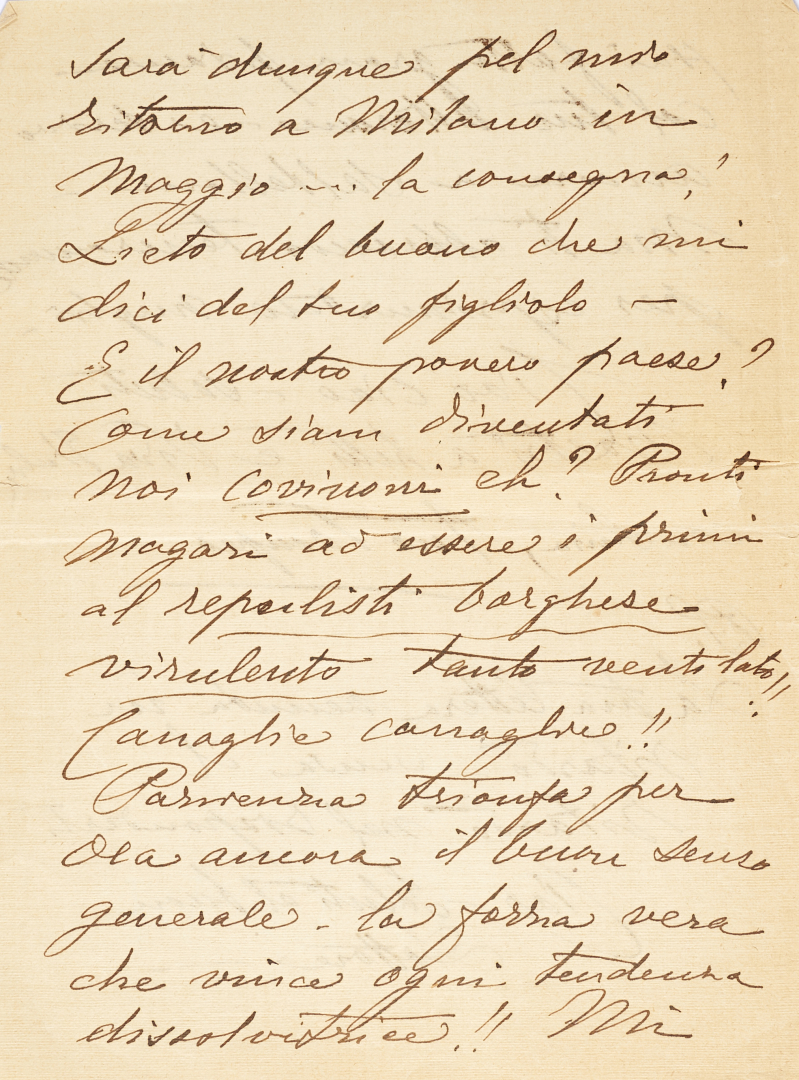 Sarà dunque pel mio
ritorno a Milano in
Maggio ... la consegna?
Lieto del buono che mi
dici del tuo figliolo —
E il nostro povero paese?
Come siam diventati
noi eh? Pronti
magari ad essere i primi
al borghese
virulento tanto ventilato!!
Canaglie canaglie!!
Parvenza trionfa per
ora ancora il buon senso
generale - la forza vera
che vince ogni tendenza
dissolvitrice!! Mi